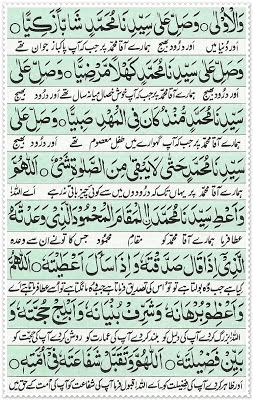 وَالْاُوْلٰى ○ وَصَلِّ عَلٰى سَيِّدِنَا مُحَمَّدٍ شَابًّا زَكِيًّا ○
اور دنیا میں اور درود بھیج ہمارے آقا محمد پر جب کہ آپ پاکباز جوان تھے
وَصَلِّ عَلٰى سَيِّدِنَا مُحَمَّدٍ كَهْلًا مَّرْضِيًّا ○ وَصَلِّ عَلٰى
اور درود بھیج ہمارے آقا محمد پر جب کہ آپ میانہ سال تھے اور درود بھیج
سَيِّدِنَا مُحَمَّدٍ مُّنْذُ كَانَ فِي الْمَهْدِ صَبِيًّا ○ وَصَلِّ عَلٰى
ہمارے آقا محمد پر جب کہ آپ گہوارے میں طفل معصوم تھے اور درود بھیج
سَيِّدِنَا مُحَمَّدٍ حَتّٰى لَا يَبْقٰى مِنَ الصَّلٰوةِ شَيْءٌ ○ اَللّٰهُمَّ
ہمارے آقا محمد پر یہاں تک کہ درودوں میں سے کوئی چیز باقی نہ رہے اے اللہ!
وَاَعْطِ سَيِّدَنَا مُحَمَّدَ ࣙالْمَقَامَ الْمَحْمُوْدَ الَّذِيْ وَعَدْتَّهٗ
عطا فرما ہمارے آقا محمد کو مقام محمود جس کا تو نے ان سے وعدہ
الَّذِيْ اِذَا قَالَ صَدَّقْتَهٗ وَاِذَا سَاَلَ اَعْطَيْتَهٗ ○ اَللّٰهُمَّ
وَاَعْظِمْ بُرْهَانَهٗ وَشَرِّفْ بُنْيَانَهٗ وَاَبْلِجْ حُجَّتَهٗ وَ
آپ کی دلیل کو آپ کی عمارت کو روشن کر دے آپ کی حجت کو
بَيِّنْ فَضِيْلَتَهٗ ○ اَللّٰهُمَّ وَتَقَبَّلْ شَفَاعَتَهٗ فِيْ اُمَّتِهٖ ○
اور ظاہر کر دے آپ کی فضیلت کو اے اللہ! قبول فرما آپ کی شفاعت کو آپ کی امت کے حق میں